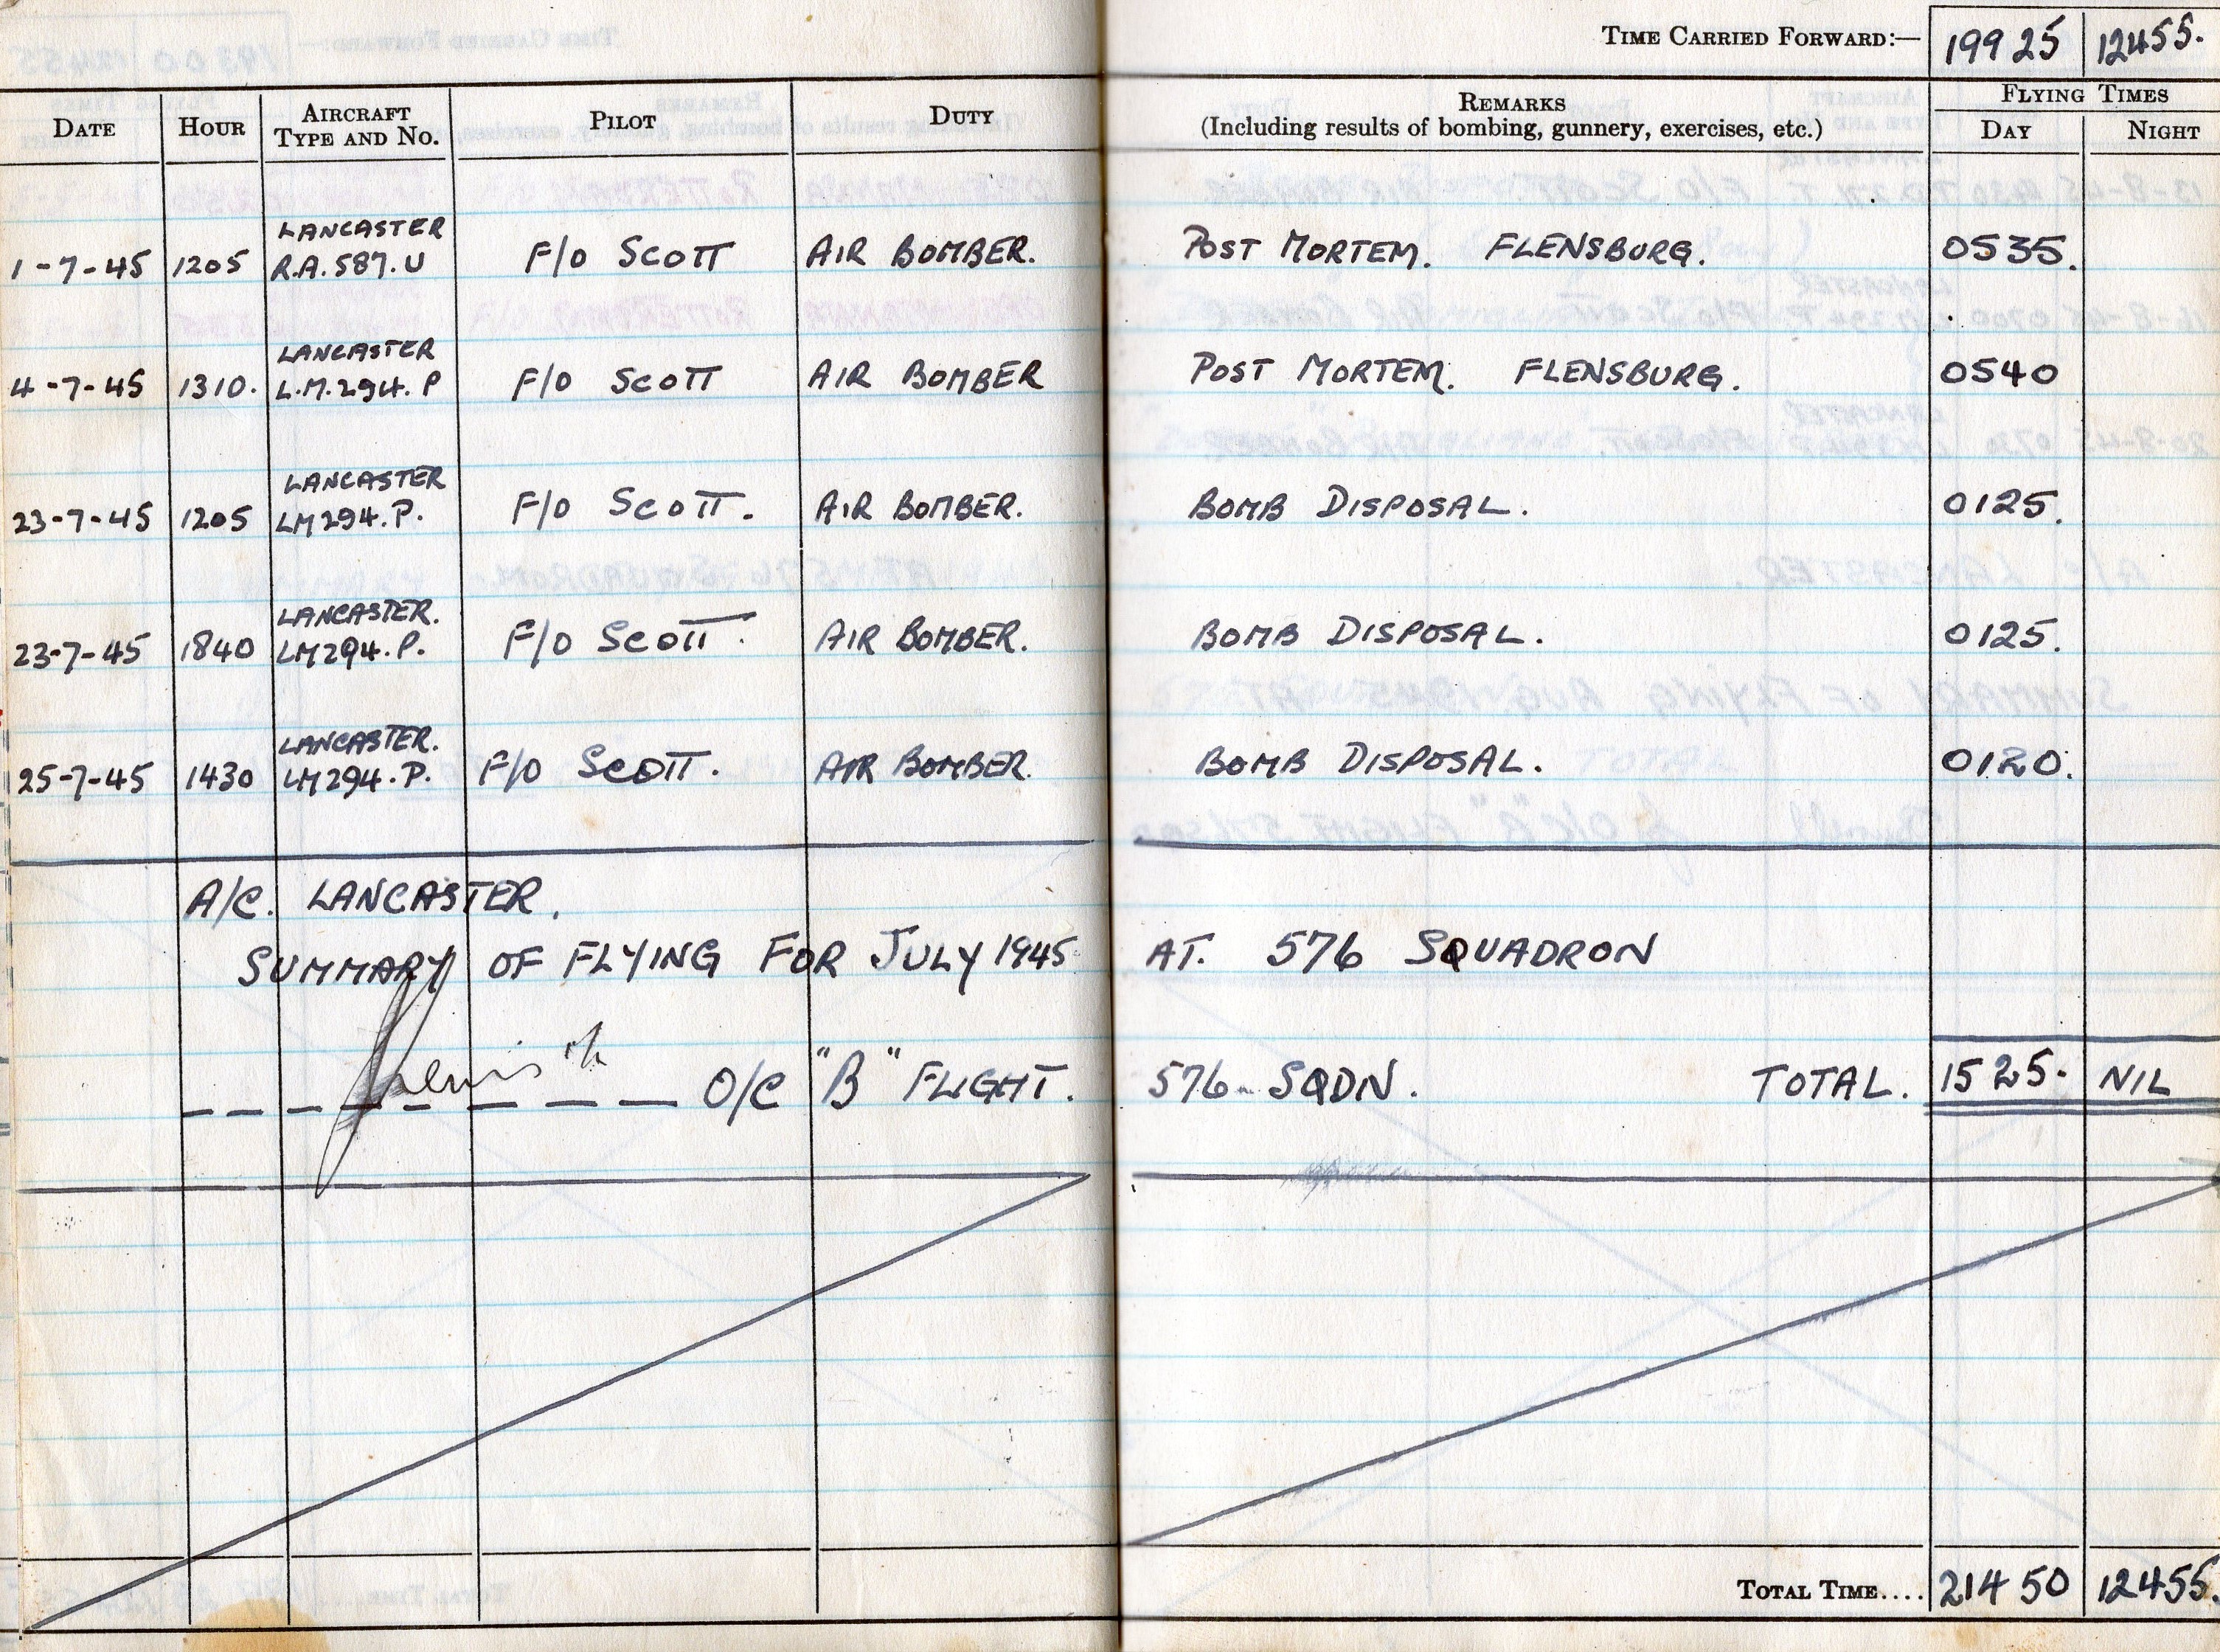 TIME CARRIED FORWARD:— 199 25 124 55.
DATE HOUR AIRCRAFT TYPE AND NO. PILOT DUTY REMARKS (Including results of bombing, gunnery, exercises, etc.) FLYING TIMES DAY NIGHT
LANCASTER
1-7-45 1205 R.A.587.U F/O SCOTT AIR BOMBER. POST MORTEM. FLENSBURG. 0535.
LANCASTER
4-7-45 1310. L.M.294.P F/O SCOTT AIR BOMBER POST MORTEM. FLENSBURG. 0540
LANCASTER
23-7-45 1205 LM294.P. F/O SCOTT. AIR BOMBER. BOMB DISPOSAL. 0125.
LANCASTER.
23-7-45 1840 LM294.P. F/O SCOTT. AIR BOMBER. BOMB DISPOSAL. 0125.
LANCASTER.
25-7-45 1430 LM294.P. F/O SCOTT. AIR BOMBER. BOMB DISPOSAL. 0120.
A/C. LANCASTER.
SUMMARY OF FLYING FOR JULY 1945 AT. 576 SQUADRON
O/C "B" FLIGHT. 576 SQDN. TOTAL. 15 25. NIL
TOTAL TIME.... 214 50 124 55.